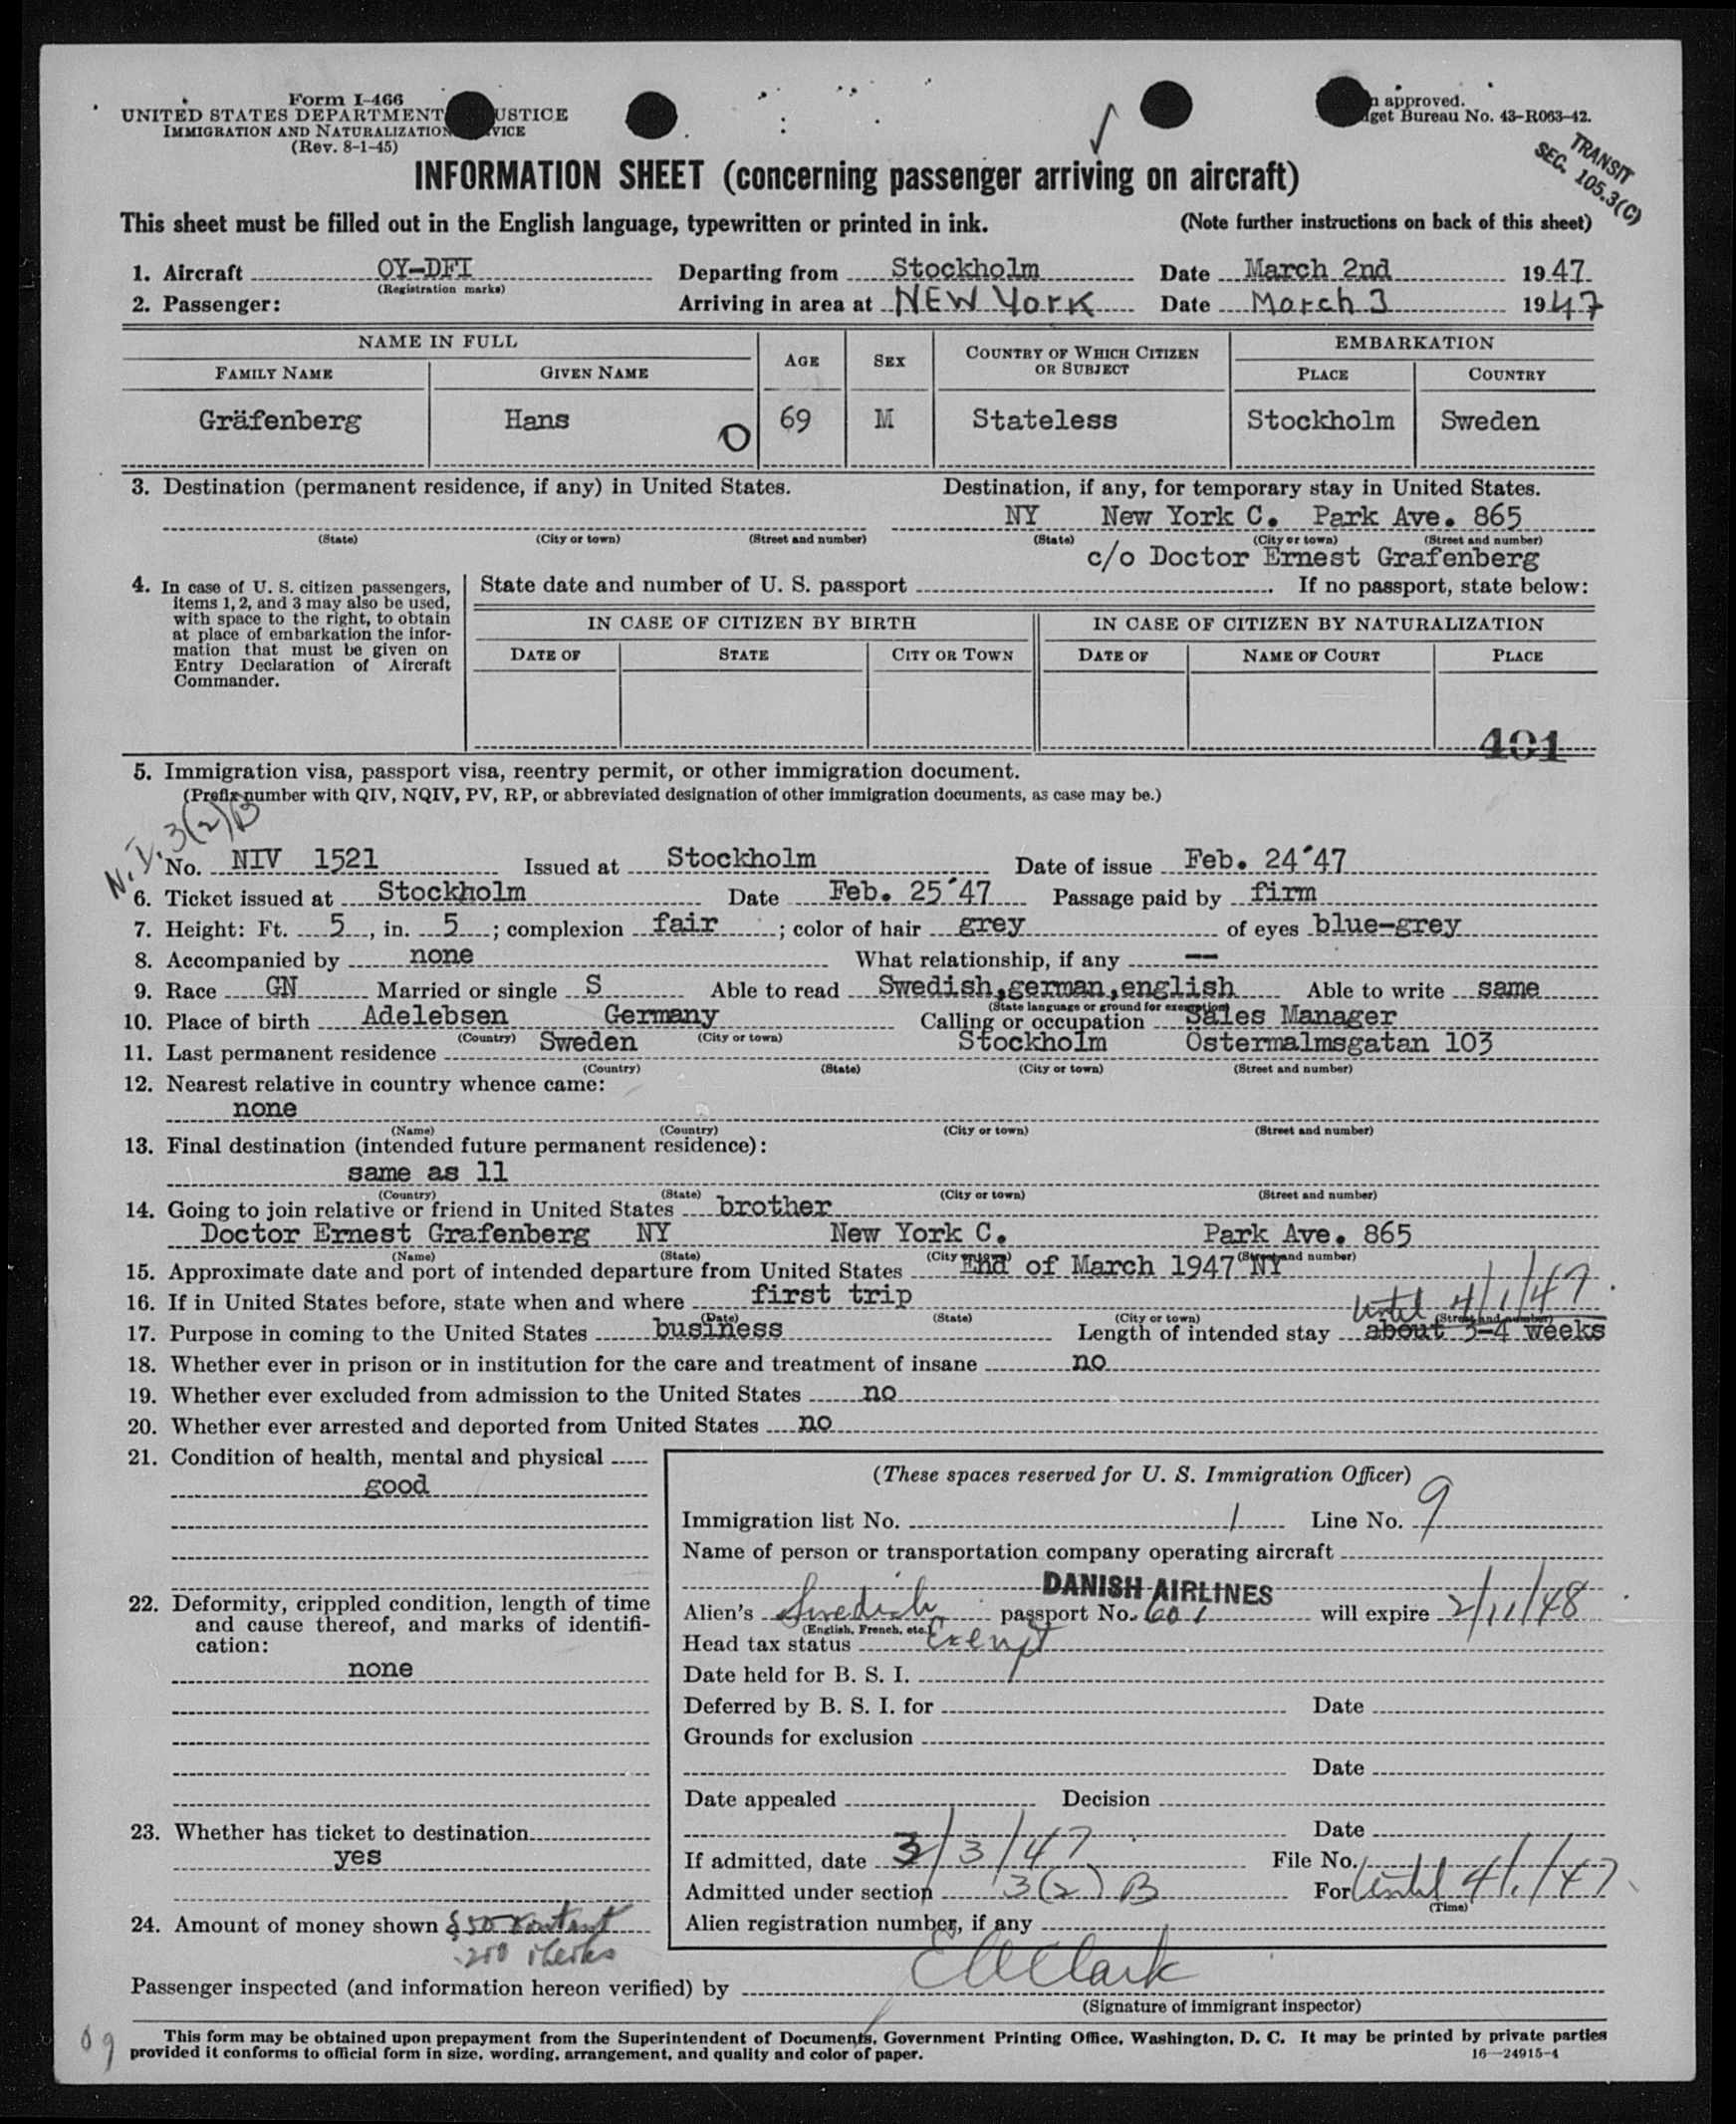 Form I-466
UNITED STATES DEPARTMENT USTICE
IMMIGRATION AND NATURALIZATION VICE
(Rev. 8-1-45)
approved.
get Bureau No. 43-R063-42.
TRANSIT
SEC. 105.3(C)
INFORMATION SHEET (concerning passenger arriving on aircraft)
This sheet must be filled out in the English language, typewritten or printed in ink. (Note further instructions on back of this sheet)
1. Aircraft OY-DFI Departing from Stockholm Date March 2nd 1947
(Registration marks)
2. Passenger: Arriving in area at NEW YORK Date March 3 1947
NAME IN FULL AGE SEX COUNTRY OF WHICH CITIZEN OR SUBJECT EMBARKATION
FAMILY NAME GIVEN NAME PLACE COUNTRY
Gräfenberg Hans O 69 M Stateless Stockholm Sweden
3. Destination (permanent residence, if any) in United States. Destination, if any, for temporary stay in United States.
NY New York C. Park Ave. 865
(State) (City or town) (Street and number) (State) (City or town) (Street and number)
c/o Doctor Ernest Grafenberg
4. In case of U. S. citizen passengers, items 1, 2, and 3 may also be used, with space to the right, to obtain at place of embarkation the information that must be given on Entry Declaration of Aircraft Commander.
State date and number of U. S. passport . If no passport, state below:
IN CASE OF CITIZEN BY BIRTH IN CASE OF CITIZEN BY NATURALIZATION
DATE OF STATE CITY OR TOWN DATE OF NAME OF COURT PLACE
401
5. Immigration visa, passport visa, reentry permit, or other immigration document.
(Prefix number with QIV, NQIV, PV, RP, or abbreviated designation of other immigration documents, as case may be.)
N.I. 3(2)B
No. NIV 1521 Issued at Stockholm Date of issue Feb. 24'47
6. Ticket issued at Stockholm Date Feb. 25'47 Passage paid by firm
7. Height: Ft. 5, in. 5; complexion fair; color of hair grey of eyes blue-grey
8. Accompanied by none What relationship, if any --
9. Race GN Married or single S Able to read Swedish,german,english Able to write same
(State language or ground for exemption)
10. Place of birth Adelebsen Germany Calling or occupation Sales Manager
(Country) (City or town)
11. Last permanent residence Sweden Stockholm Ostermalmsgatan 103
(Country) (State) (City or town) (Street and number)
12. Nearest relative in country whence came:
none
(Name) (Country) (City or town) (Street and number)
13. Final destination (intended future permanent residence):
same as 11
(Country) (State) (City or town) (Street and number)
14. Going to join relative or friend in United States brother
Doctor Ernest Grafenberg NY New York C. Park Ave. 865
(Name) (State) (City or town) (Street and number)
15. Approximate date and port of intended departure from United States End of March 1947 NY
16. If in United States before, state when and where first trip
(Date) (State) (City or town) (Street and number)
until 4/1/47
17. Purpose in coming to the United States business Length of intended stay about 3-4 weeks
18. Whether ever in prison or in institution for the care and treatment of insane no
19. Whether ever excluded from admission to the United States no
20. Whether ever arrested and deported from United States no
21. Condition of health, mental and physical
good
22. Deformity, crippled condition, length of time and cause thereof, and marks of identification:
none
23. Whether has ticket to destination
yes
24. Amount of money shown $50 Kontant
200 checks
(These spaces reserved for U. S. Immigration Officer)
Immigration list No. 1 Line No. 9
Name of person or transportation company operating aircraft
DANISH AIRLINES
Alien's Swedish passport No. 601 will expire 2/11/48
(English, French, etc.)
Head tax status Exempt
Date held for B. S. I.
Deferred by B. S. I. for Date
Grounds for exclusion
Date
Date appealed Decision
Date
If admitted, date 3/3/47 File No.
Admitted under section 3(2) B For until 4/1/47
(Time)
Alien registration number, if any
Passenger inspected (and information hereon verified) by E W Clark
(Signature of immigrant inspector)
09
This form may be obtained upon prepayment from the Superintendent of Documents, Government Printing Office, Washington, D. C. It may be printed by private parties
provided it conforms to official form in size, wording, arrangement, and quality and color of paper. 16—24915-4